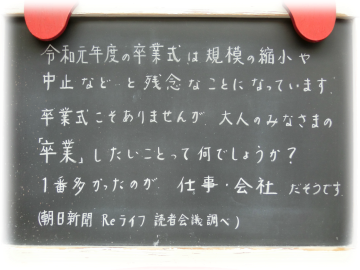 令和元年度の卒業式は規模の縮小や
中止など、と残念なことになっています。
卒業式こそありませんが、大人のみなさまの
「卒業」したいことって何でしょうか？
1番多かったのが、仕事・会社 だそうです。
(朝日新聞 Reライフ 読者会議調べ)